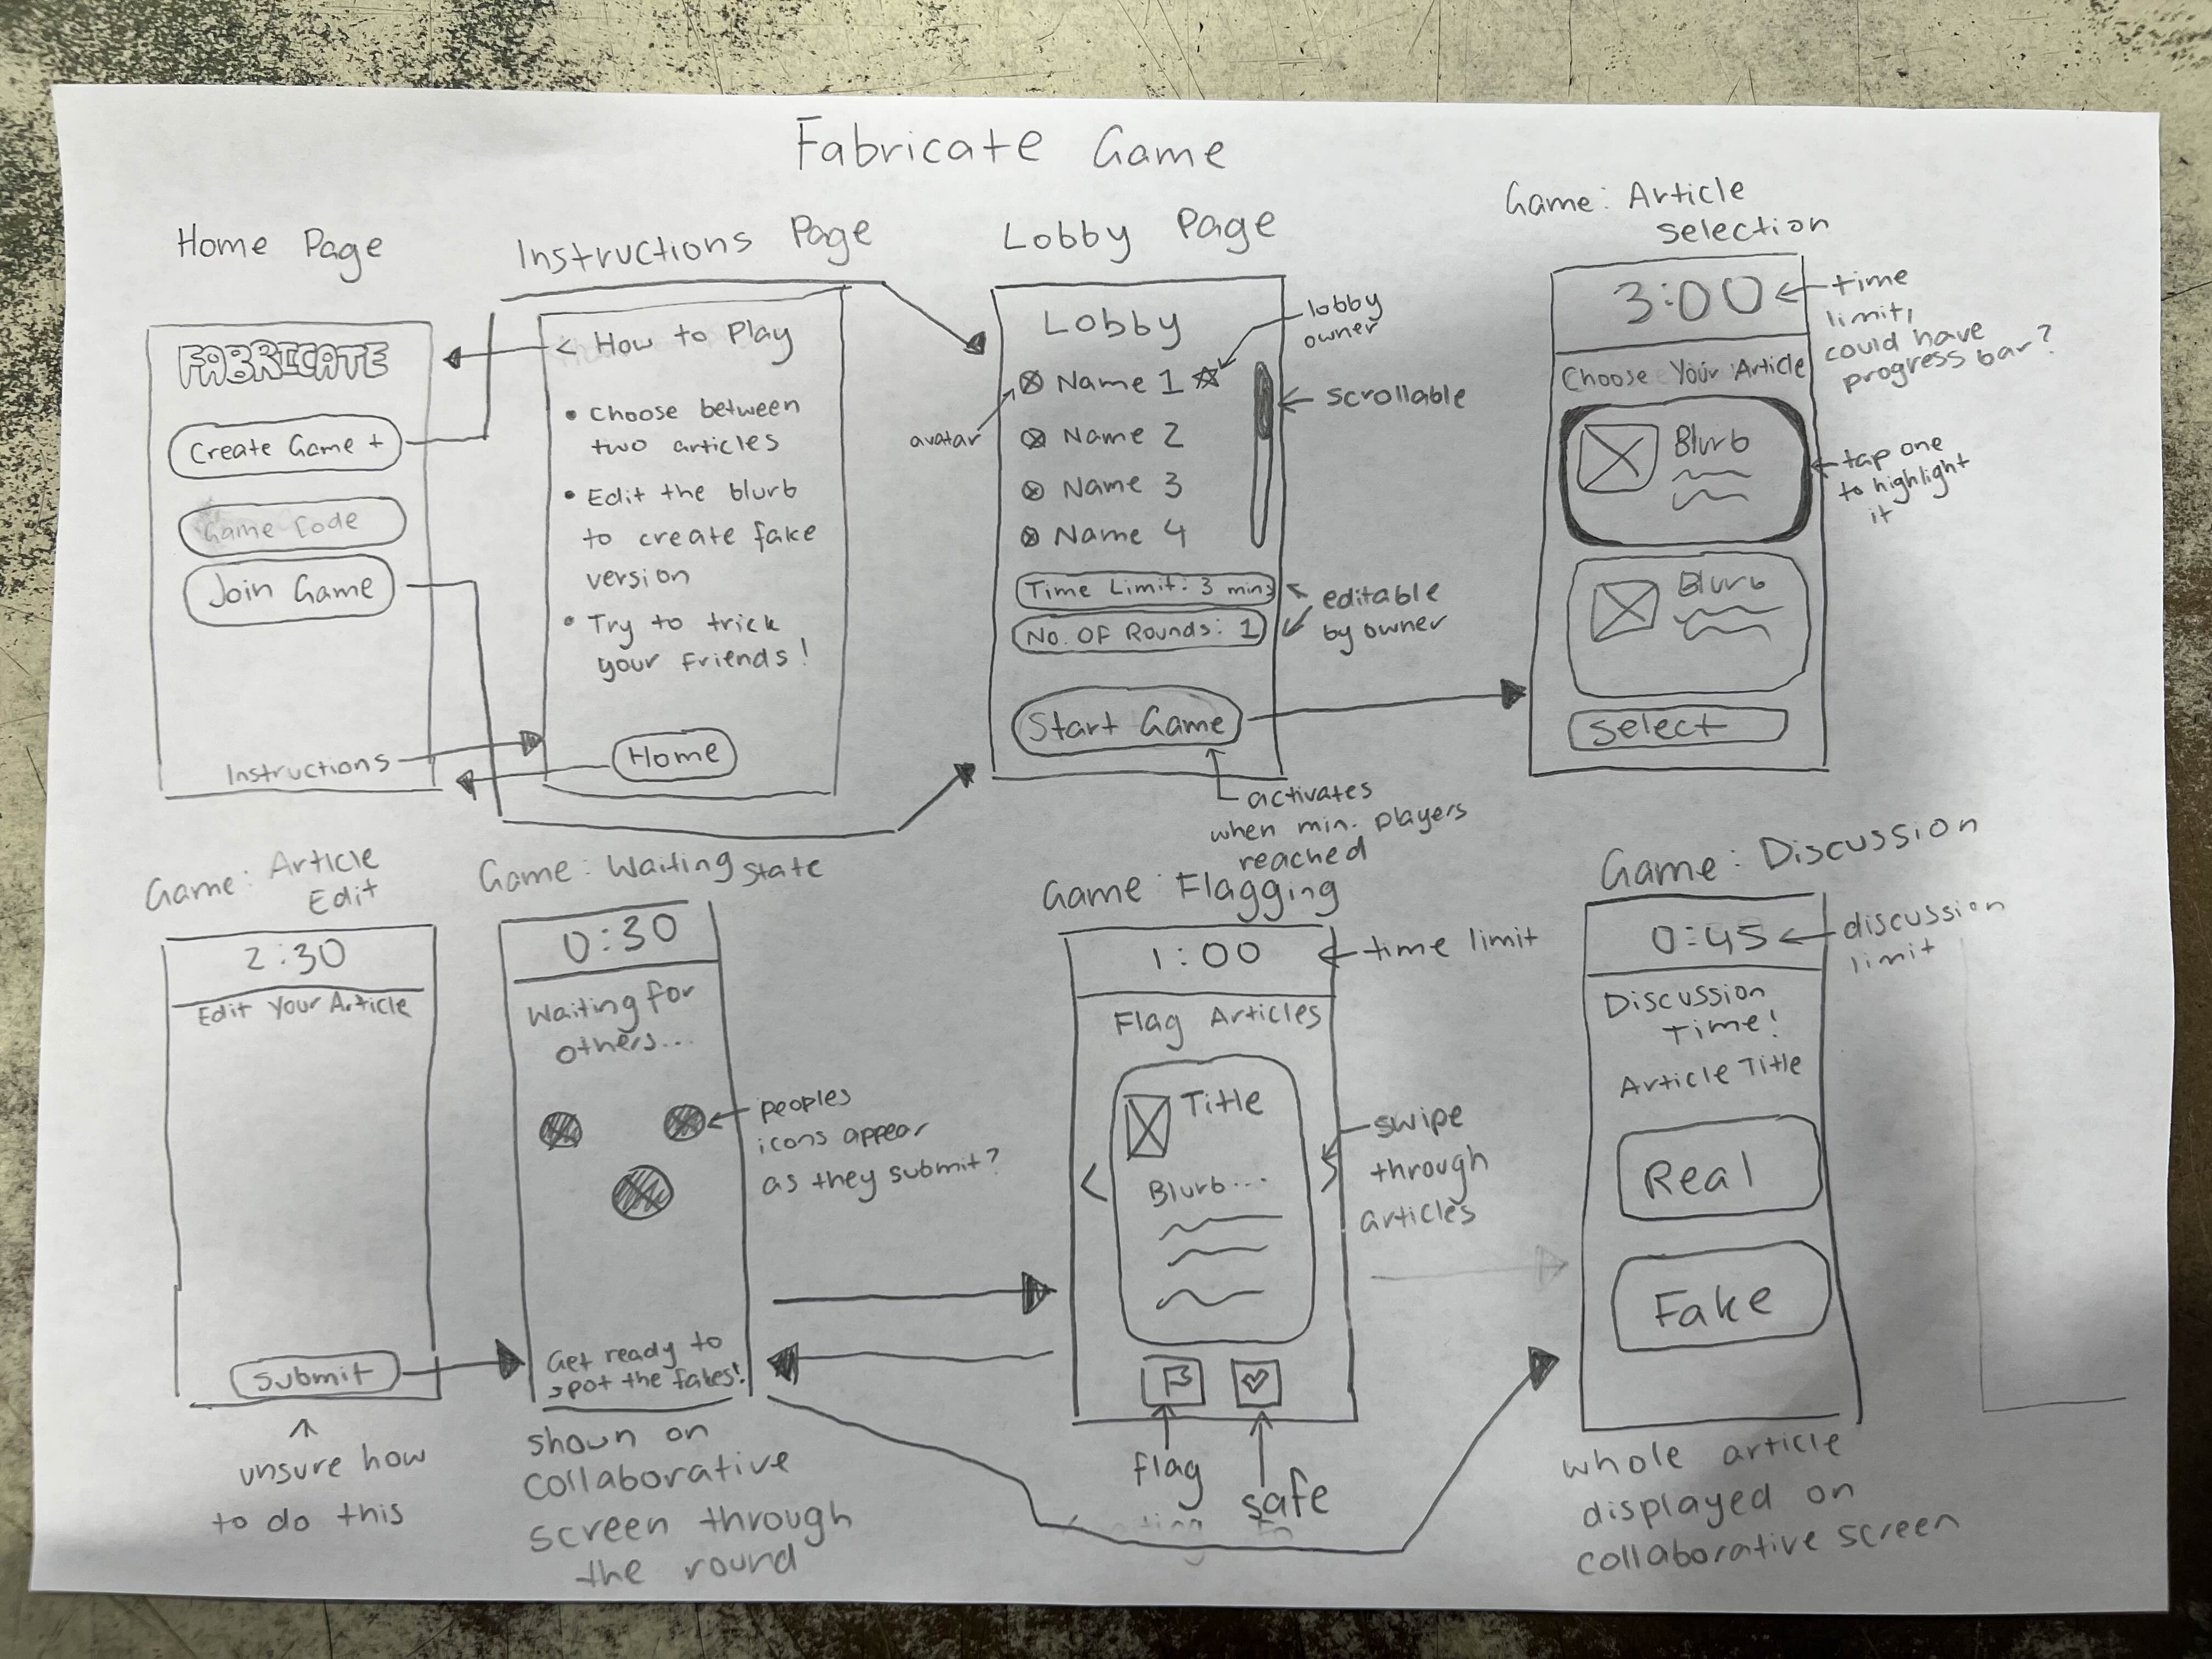 Fabricate Game
Home Page
FABRICATE
Create Game +
Game Code
Join Game
Instructions
Instructions Page
< How to Play
• Choose between
two articles
• Edit the blurb
to create fake
version
• Try to trick
your friends!
Home
Lobby Page
Lobby
Name 1
Name 2
Name 3
Name 4
avatar
lobby
owner
scrollable
Time Limit: 3 min
No. OF Rounds: 1
editable
by owner
Start Game
activates
when min. players
reached
Game: Article
selection
3:00
time
limit,
could have
progress bar?
Choose Your Article
Blurb
tap one
to highlight
it
Blurb
select
Game: Article
Edit
2:30
Edit Your Article
submit
unsure how
to do this
Game: Waiting state
0:30
Waiting for
others...
peoples
icons appear
as they submit?
Get ready to
spot the fakes!
shown on
collaborative
screen through
the round
Game: Flagging
1:00
time limit
Flag Articles
Title
Blurb...
<
>
swipe
through
articles
flag
safe
Game: Discussion
0:45
discussion
limit
Discussion
Time!
Article Title
Real
Fake
whole article
displayed on
collaborative screen